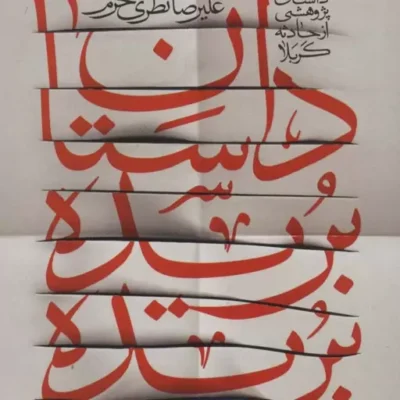 داستان
پژوهشی
از حادثه
کربلا
علیرضا نظری خرم
داستان
بریده
بریده